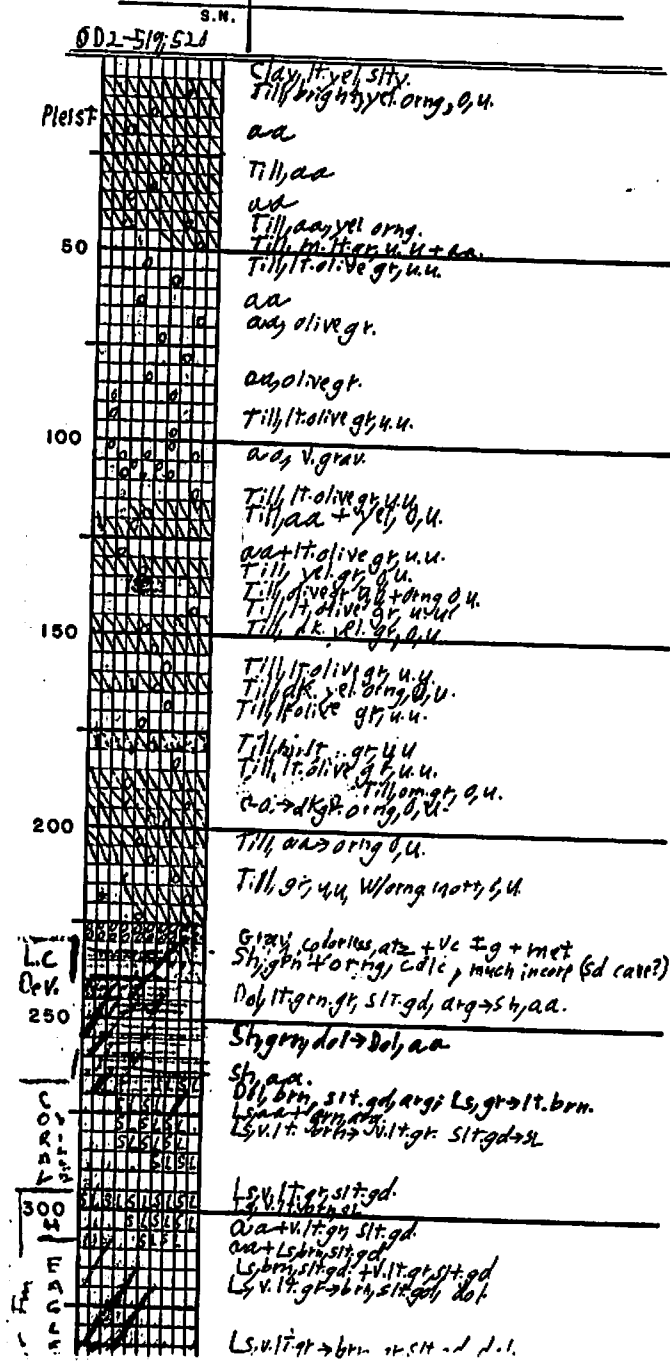 S.N.
OD2-519;520
Clay, lt. yel, slty.
Till, bright yel. orng, O, u.
Pleist
aa
Till, aa
aa
Till, aa, yel orng.
Till, m. lt. gr, u. u + aa.
50
Till, lt. olive gr, u.u.
aa
aa, olive gr.
aa, olive gr.
Till, lt. olive gr, u.u.
100
aa, v. grav.
Till, lt. olive gr, u.u.
Till, aa + yel, O, u.
aa + lt. olive gr, u.u.
Till, yel. gr, O u.
Till, olive gr u,u + orng O u.
Till, lt. olive gr, u.u
150
Till, dk. yel. gr, O, u
Till, lt olive gr, u.u.
Till, dk. yel orng, O, u.
Till, lt olive gr, u.u.
Till, gr, u u
Till, lt. olive gr, u.u.
Till, gr, O, u.
→ dk gr. orng, O, u.
200
Till, aa → orng O, u.
Till, gr, u,u, w/orng mott, O, u.
Grav, colorless, qtz + vc Ig + met
L.C
Sh, grn + orng, calc, much incorp (Sd cave?)
Dev.
Dol, lt. grn. gr, slt. gd, arg → sh, aa.
250
Sh, grn, dol → Dol, aa
Sh, aa.
Dol, brn, slt. gd, arg; Ls, gr → lt. brn.
Ls, aa + grn, arg
Ls, v. lt. brn → v. lt. gr. slt. gd → sl
Ls, v. lt. gr, slt. gd.
300
aa + v. lt. gr, slt. gd.
aa + Ls, brn, slt. gd
Ls, brn, slt. gd. + v. lt. gr, slt. gd
Ls, v. lt. gr → brn, slt. gd, dol.
Fm
Ls, v. lt. gr → brn